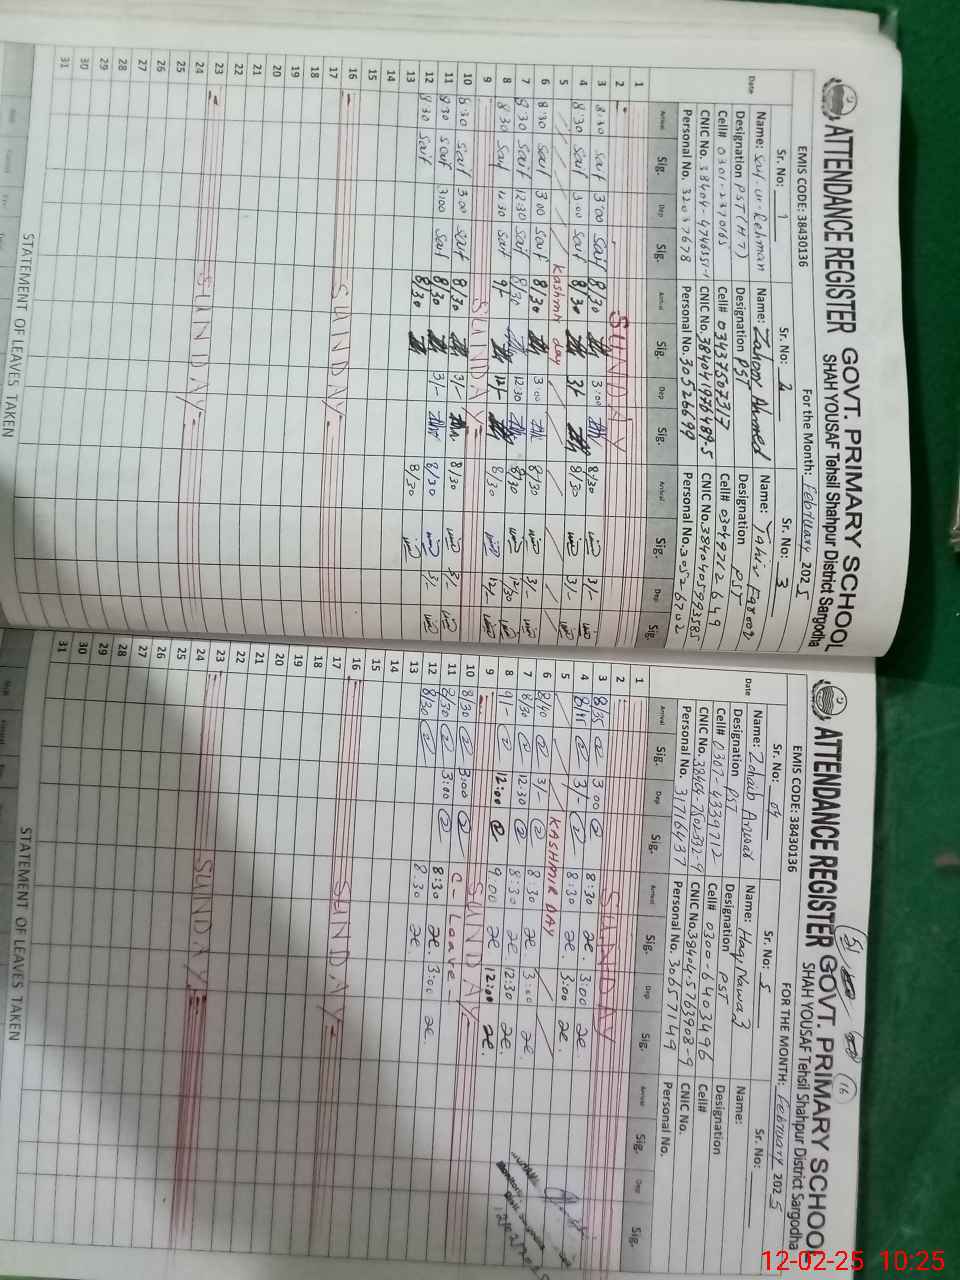 ATTENDANCE REGISTER GOVT. PRIMARY SCHOOL
SHAH YOUSAF Tehsil Shahpur District Sargodha
EMIS CODE: 38430136
For the Month: February 2025
Sr. No: 1
Name: Saif-ur-Rehman
Designation PST (HT)
CNIC No.
Personal No. 32037678
Sr. No: 2
Name: Zaheer Ahmed
Designation PST
Cell# 03437507317
CNIC No. 38404
Personal No. 30526699
Sr. No: 3
Name: Tahir Farooq
Designation PST
Cell# 03049712649
CNIC No. 38404
Personal No. 30526702
Date Arrival Sig. Dep Sig. Arrival Sig. Dep Sig. Arrival Sig. Dep Sig.
1
2 SUNDAY
3 8:30 Saif 3:00 Saif 8/30 3:00 8/30 3/-
4 8:30 Saif 3:00 Saif 8/30 3/- 8/30 3/-
5 Kashmir day
6 8:30 Saif 3:00 Saif 8/30 3:00 8/30 3/-
7 8:30 Saif 12:30 Saif 8/30 12:30 8/30 12/30
8 8:30 Saif 12:30 Saif 9/- 12/- 8/30 12/-
9 SUNDAY
10 8:30 Saif 3:00 Saif 8/30 3/- 8/30 3/-
11 8:30 Saif 3:00 Saif 8/30 3/- 8/30 3/-
12 8:30 Saif 8/30 8/30
13
14
15
16 SUNDAY
17
18
19
20
21
22
23 SUNDAY
24
25
26
27
28
29
30
31
STATEMENT OF LEAVES TAKEN
5
16
ATTENDANCE REGISTER GOVT. PRIMARY SCHOOL
SHAH YOUSAF Tehsil Shahpur District Sargodha
EMIS CODE: 38430136
FOR THE MONTH: February 2025
Sr. No: 04
Name: Zohaib Anwar
Designation PST
Cell# 0307-4339712
CNIC No. 38404-7502332-9
Personal No. 31716437
Sr. No: 5
Name: Haq Nawaz
Designation PST
Cell# 0300-6403496
CNIC No. 38404-5763908-9
Personal No. 30657149
Sr. No:
Name:
Designation
Cell#
CNIC No.
Personal No.
Date Arrival Sig. Dep Sig. Arrival Sig. Dep Sig. Arrival Sig. Dep Sig.
1
2 SUNDAY
3 8/35 3:00 8:30 3:00
4 8/45 3/- 8:30 3:00
5 KASHMIR DAY
6 8/40 3/- 8:30 3:00
7 8/30 12:30 8:30 12:30
8 9/- 12:00 9:00 12:00
9 SUNDAY
10 8/30 3:00 C-Leave
11 8/30 3:00 8:30 3:00
12 8/30 8:30
13
14
15
16 SUNDAY
17
18
19
20
21
22
23 SUNDAY
24
25
26
27
28
29
30
31
STATEMENT OF LEAVES TAKEN
12-02-25 10:25